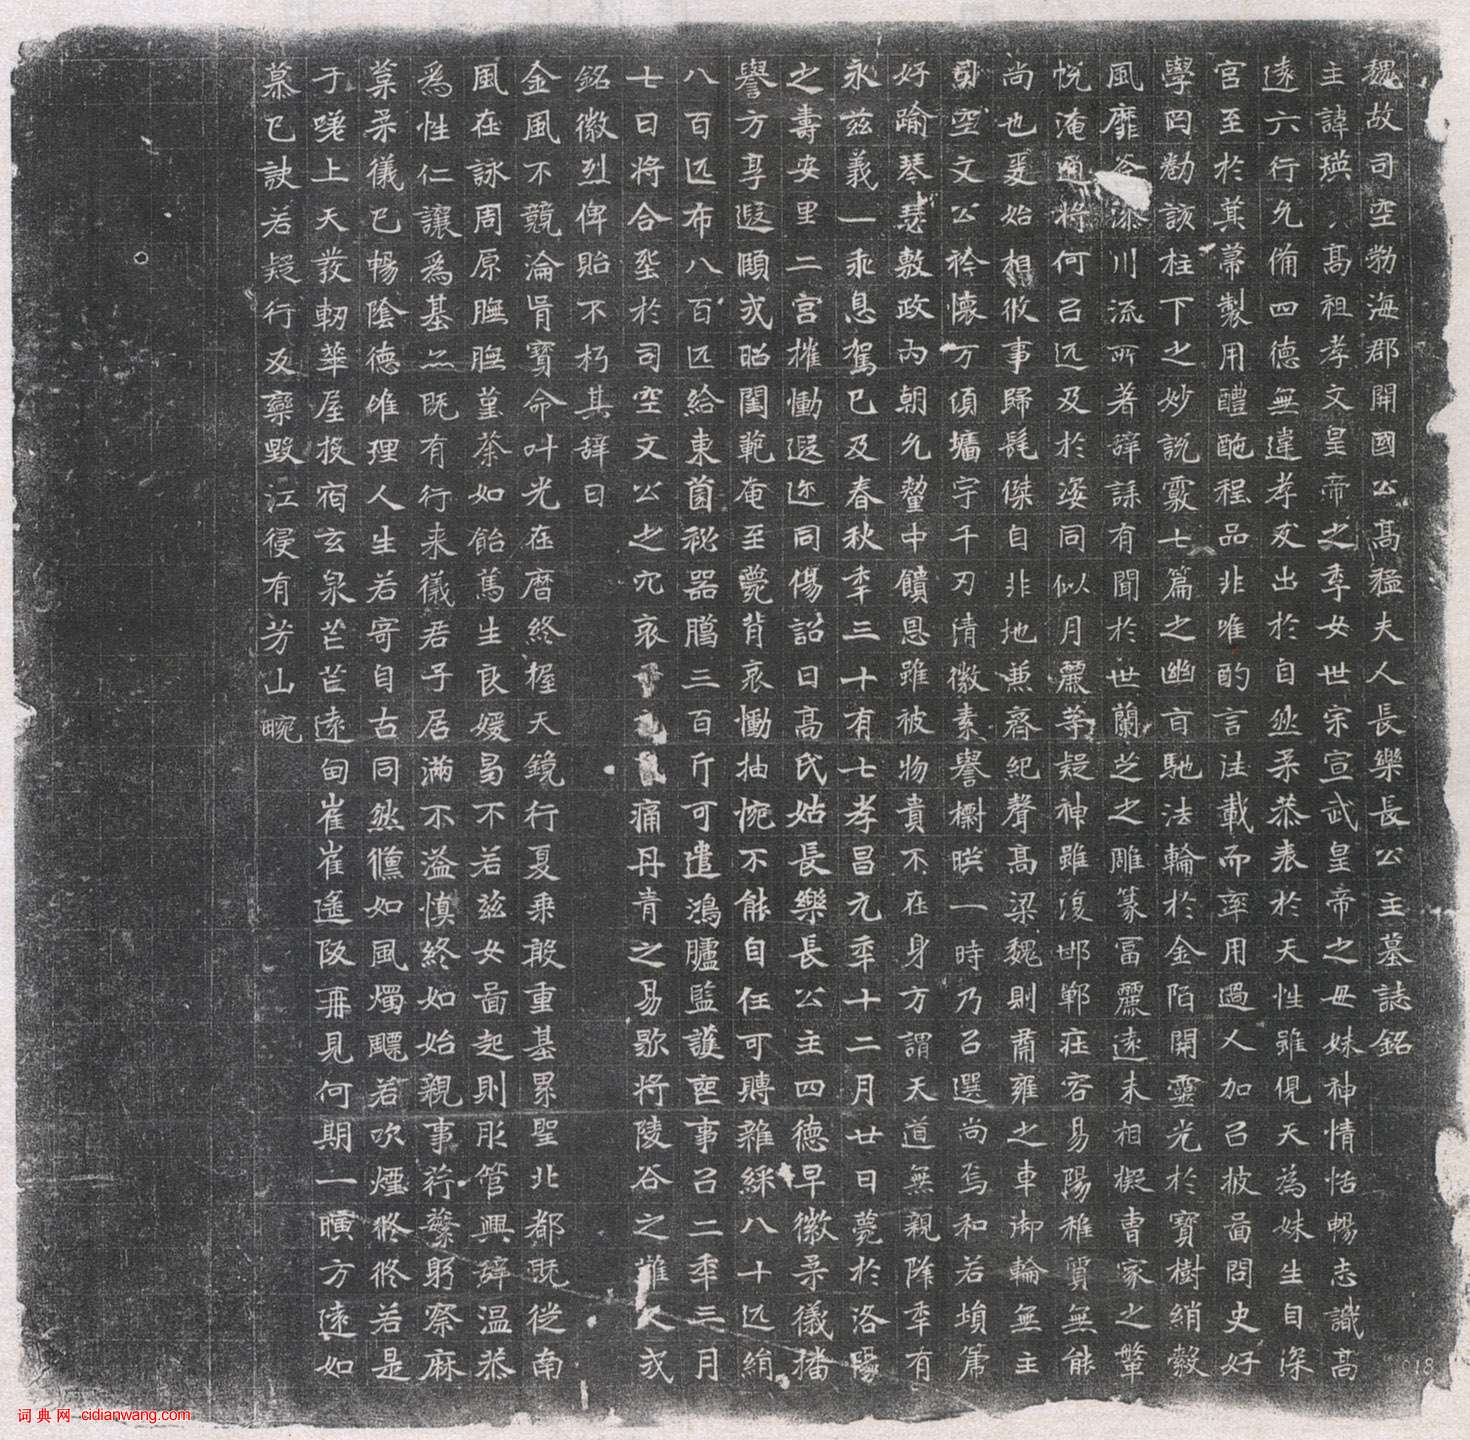 魏故司空勃海郡開國公高猛夫人長樂長公主墓誌銘
主諱瑛高祖孝文皇帝之季女世宗宣武皇帝之母妹神情恬暢志識高
遠六行允備四德無違孝友出於自然柔恭表於天性雖俔天為妹生自深
宮至於箕帚製用醴酏程品非唯酌言注載而率用過人加召披圖問史好
學罔勌該柱下之妙說覈七篇之幽旨馳法輪於金陌開靈光於寶樹綃縠
風靡谷漆川流所著辭誄有聞於世蘭芝之雕篆富麗遠未相擬曹家之鞶
帨淹通將何召远及於姿同似月麗等疑神雖復邯鄲莊容易陽稚質無能
尚也爰始相攸事歸髦傑自非地兼齊紀聲高梁魏則肅雍之車御輪無主
司空文公衿懷万傾墉宇千刃清徽素譽櫛映一時乃召選尚焉和若塤箎
好踰琴瑟敷政內朝允釐中饋恩雖被物貴不在身方謂天道無親降秊有
永茲義一乖息駕已及春秋秊三十有七孝昌元秊十二月廿日薨於洛陽
之壽安里二宮摧慟遐迩同傷詔曰高氏姑長樂長公主四德早徽柔儀播
譽方享遐頤式昭閨範奄至薨背哀慟抽惋不能自任可賻雜綵八十匹絹
八百匹布八百匹給東園秘器臈三百斤可遣鴻臚監護喪事召二秊三月
七日將合塟於司空文公之穴哀痛丹青之易歇將陵谷之難久式
銘徽烈俾貽不朽其辭曰
金風不競淪胥寶命叶光在曆終握天鏡行夏乘敢重基累聖北都既從南
風在詠周原膴膴堇荼如飴篤生良媛曷不若茲女圖起則彤管興辭溫恭
為性仁讓為基亦既有行来儀君子居滿不溢慎終如始親事荇蘩躬察麻
菜柔儀已暢陰德唯理人生若寄自古同然儵如風燭飃若吹煙攸攸若是
于嗟上天發軔華屋投宿玄泉芒芒遠甸崔崔遙阪再見何期一曠方遠如
慕已訣若疑行反欒毀江侵有芳山畹
018
词典网 - cidianwang.com